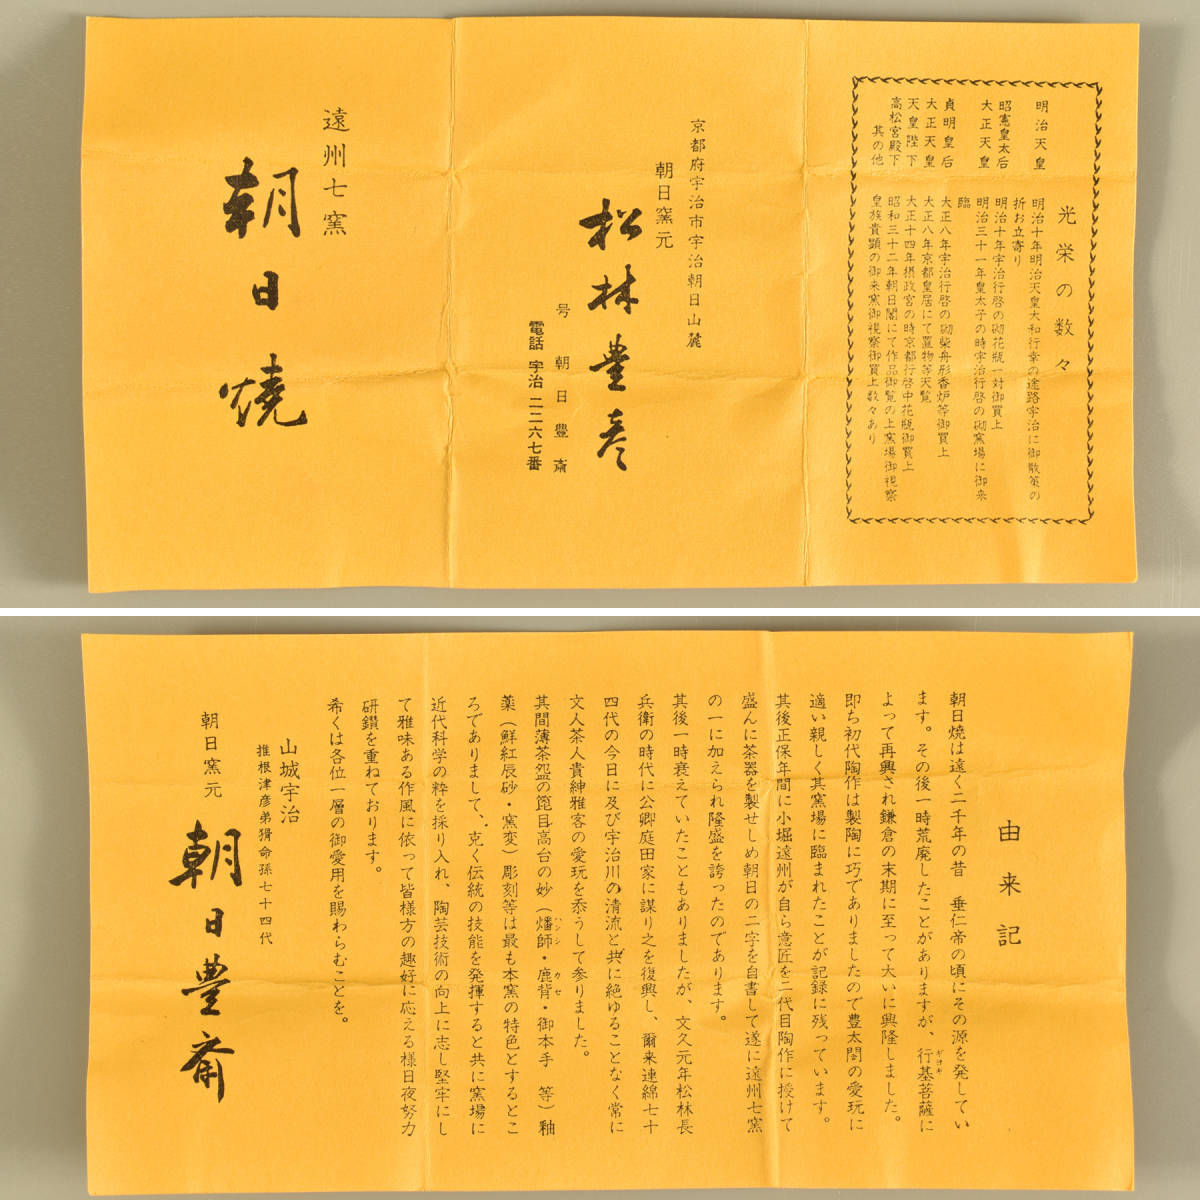 光栄の数々
明治天皇
明治十年明治天皇大和行幸の途路宇治に御散策の
折お立寄り
昭憲皇太后
明治十年宇治行啓の砌花瓶一対御買上
大正天皇
明治三十一年皇太子の時宇治行啓の砌窯場に御来
臨
貞明皇后
大正八年宇治行啓の砌柴舟形香炉等御買上
大正天皇
大正八年京都皇居にて置物等天覧
天皇陛下
大正十四年摂政宮の時京都行啓中花瓶御買上
高松宮殿下
昭和三十二年朝日閣にて作品御覧の上窯場御視察
其の他
皇族貴顕の御来窯御視察御買上数々あり
京都府宇治市宇治朝日山麓
朝日窯元
松林豊彦
号 朝日豊斎
電話 宇治 二二六七番
遠州七窯
朝日焼
由来記
朝日焼は遠く二千年の昔 垂仁帝の頃にその源を発してい
ます。その後一時荒廃したことがありますが、行基菩薩に
ギヨキ
よって再興され鎌倉の末期に至って大いに興隆しました。
即ち初代陶作は製陶に巧でありましたので豊太閤の愛玩に
適い親しく其窯場に臨まれたことが記録に残っています。
其後正保年間に小堀遠州が自ら意匠を二代目陶作に授けて
盛んに茶器を製せしめ朝日の二字を自書して遂に遠州七窯
の一に加えられ隆盛を誇ったのであります。
其後一時衰えていたこともありましたが、文久元年松林長
兵衛の時代に公卿庭田家に謀り之を復興し、爾来連綿七十
四代の今日に及び宇治川の清流と共に絶ゆることなく常に
文人茶人貴紳雅客の愛玩を忝うして参りました。
其間薄茶盌の箆目高台の妙(燔師・鹿背・御本手 等)釉
ハンシ カセ
薬(鮮紅辰砂・窯変)彫刻等は最も本窯の特色とするとこ
ろでありまして、克く伝統の技能を発揮すると共に窯場に
近代科学の粋を採り入れ、陶芸技術の向上に志し堅牢にし
て雅味ある作風に依って皆様方の趣好に応える様日夜努力
研鑽を重ねております。
希くは各位一層の御愛用を賜わらむことを。
山城宇治
推根津彦弟猾命孫七十四代
朝日窯元
朝日豊斎